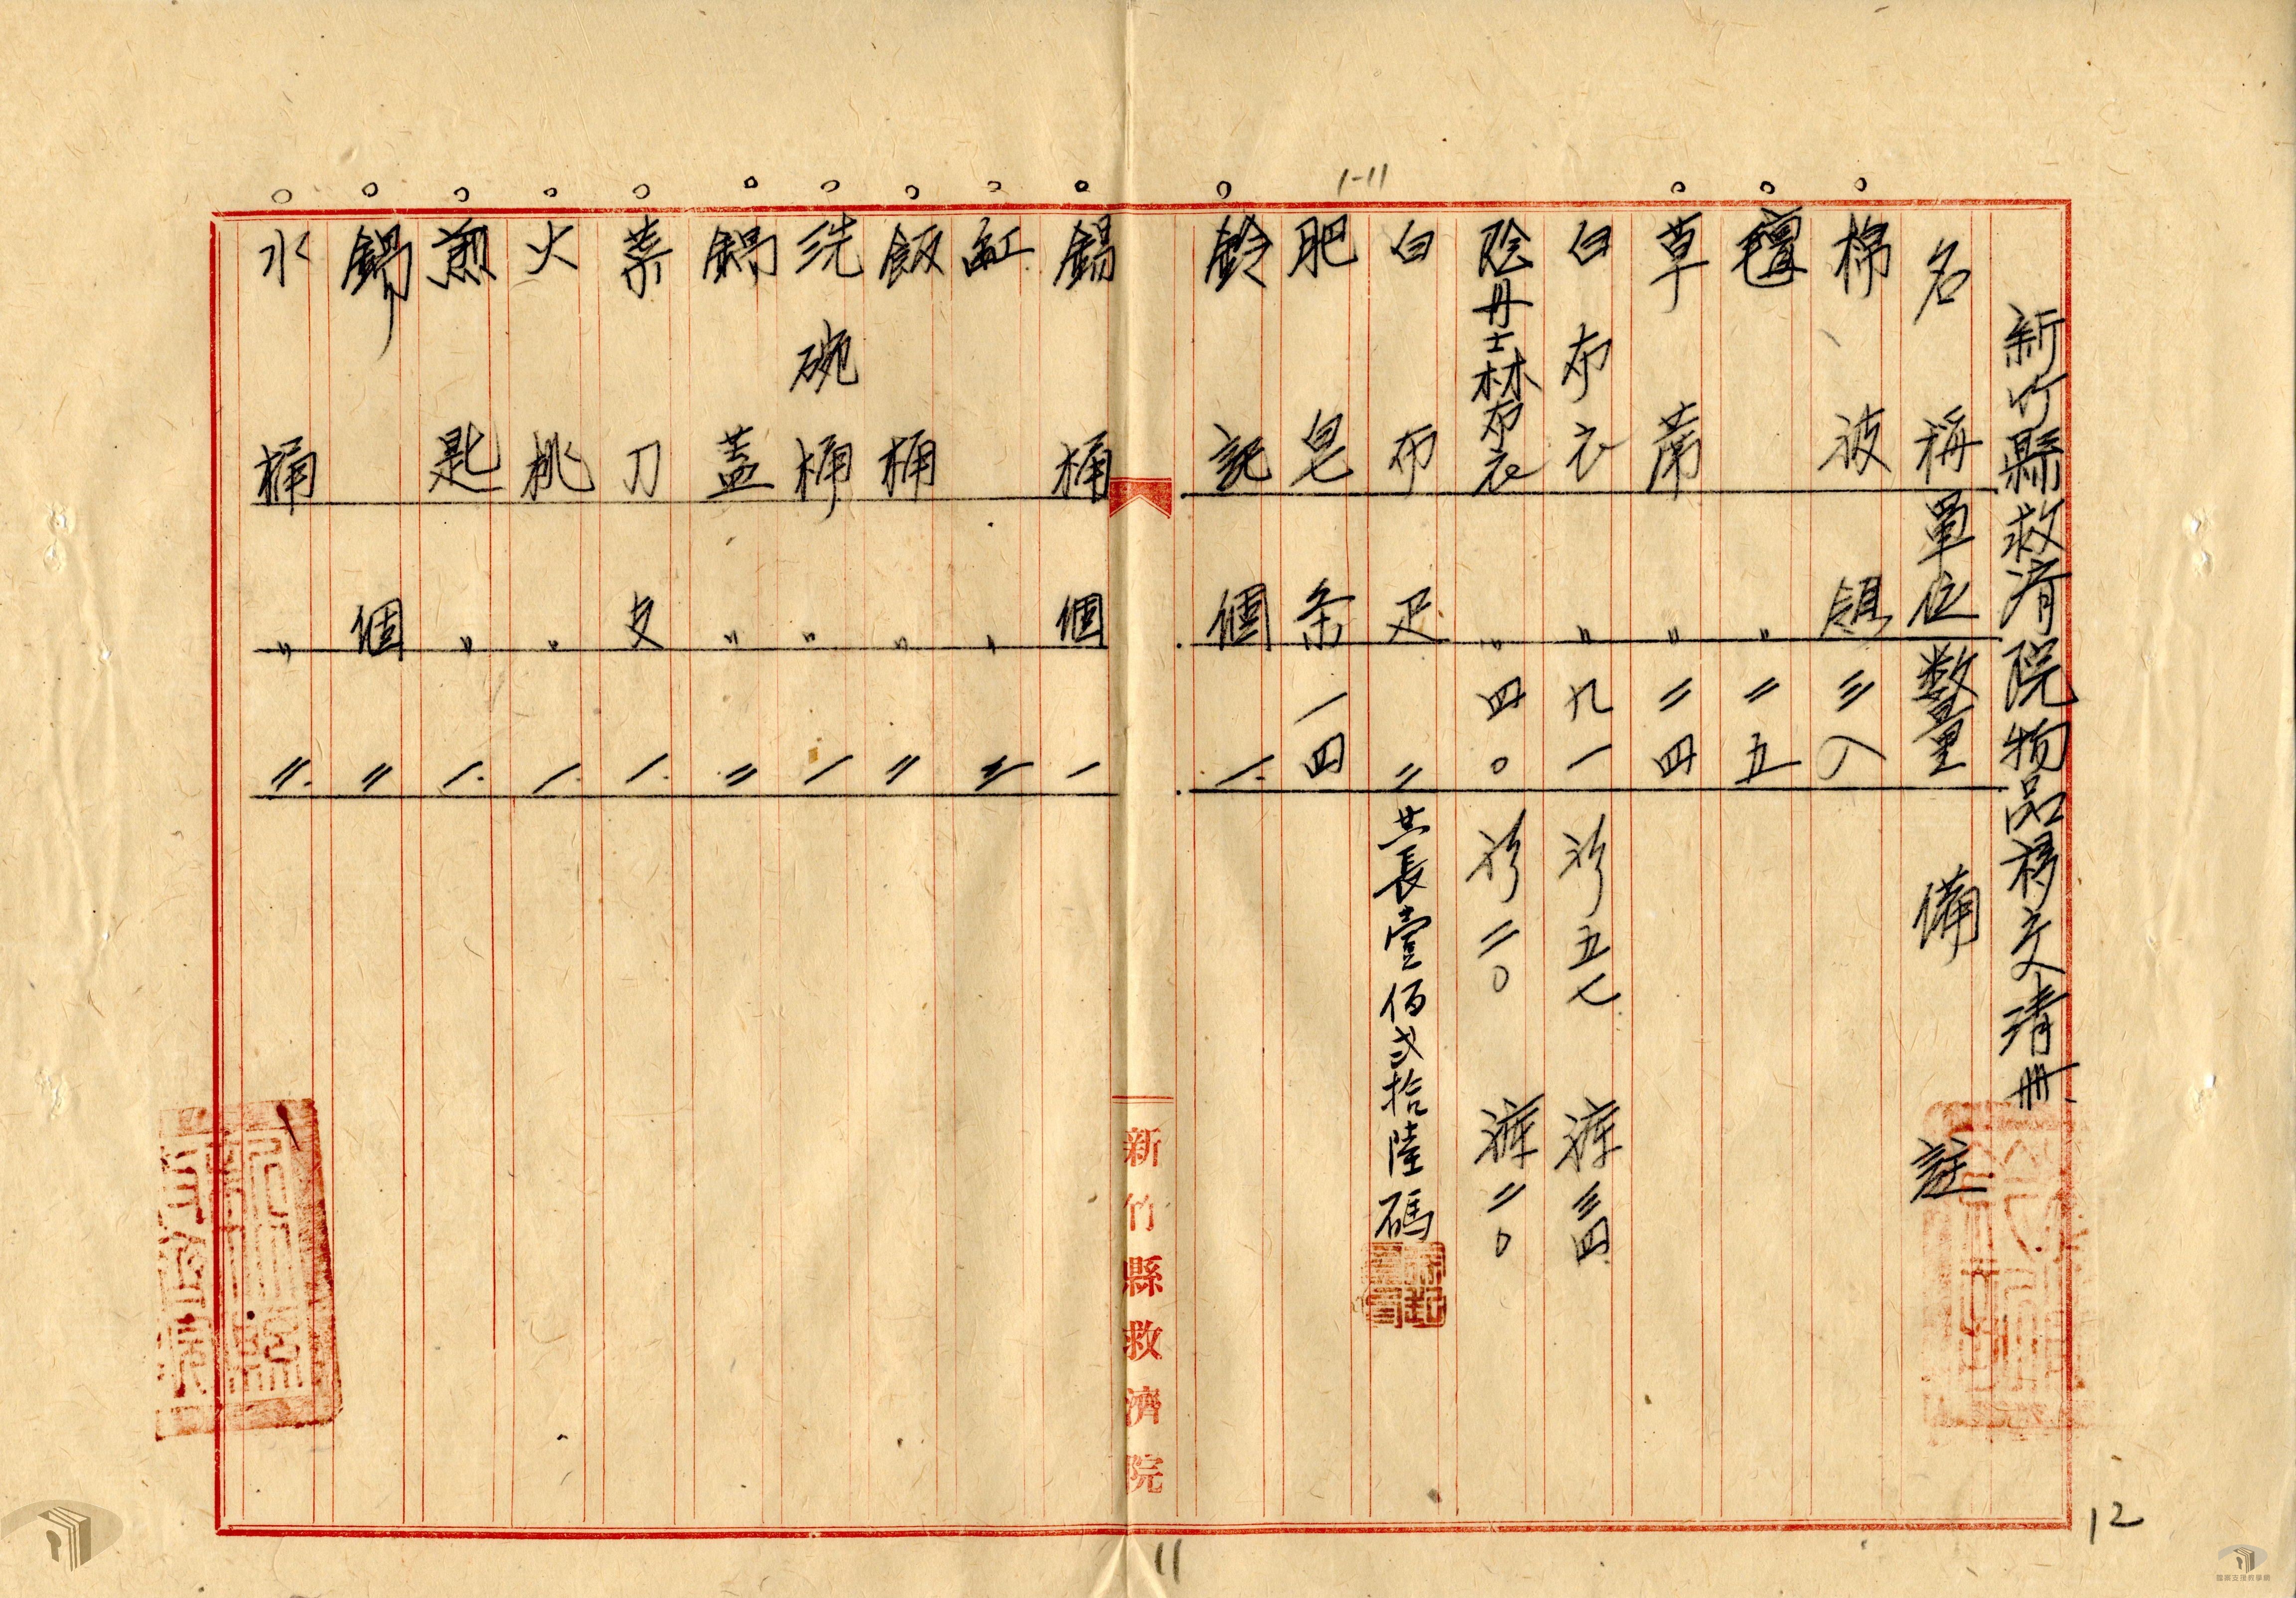 新竹縣救濟院物品移交清冊
名稱 單位 数量 備註
棉被 組 三八
氈 〃 二五
草蓆 〃 二四
白布衣 〃 九一 衫五七 褲三四
陰丹士林布衣 〃 四〇 衫二〇 褲二〇
白布 疋 二 共長壹佰弍拾陸碼
肥皂 条 一四
鈴記 個 一
1-11
新竹縣救濟院
錫桶 個 一
缸 〃
飯桶 〃 二
洗碗桶 〃 一
鍋蓋 〃 二
菜刀 支 一
火挑 〃 一
煎匙 〃 一
鍋 個 二
水桶 〃 二
11
12